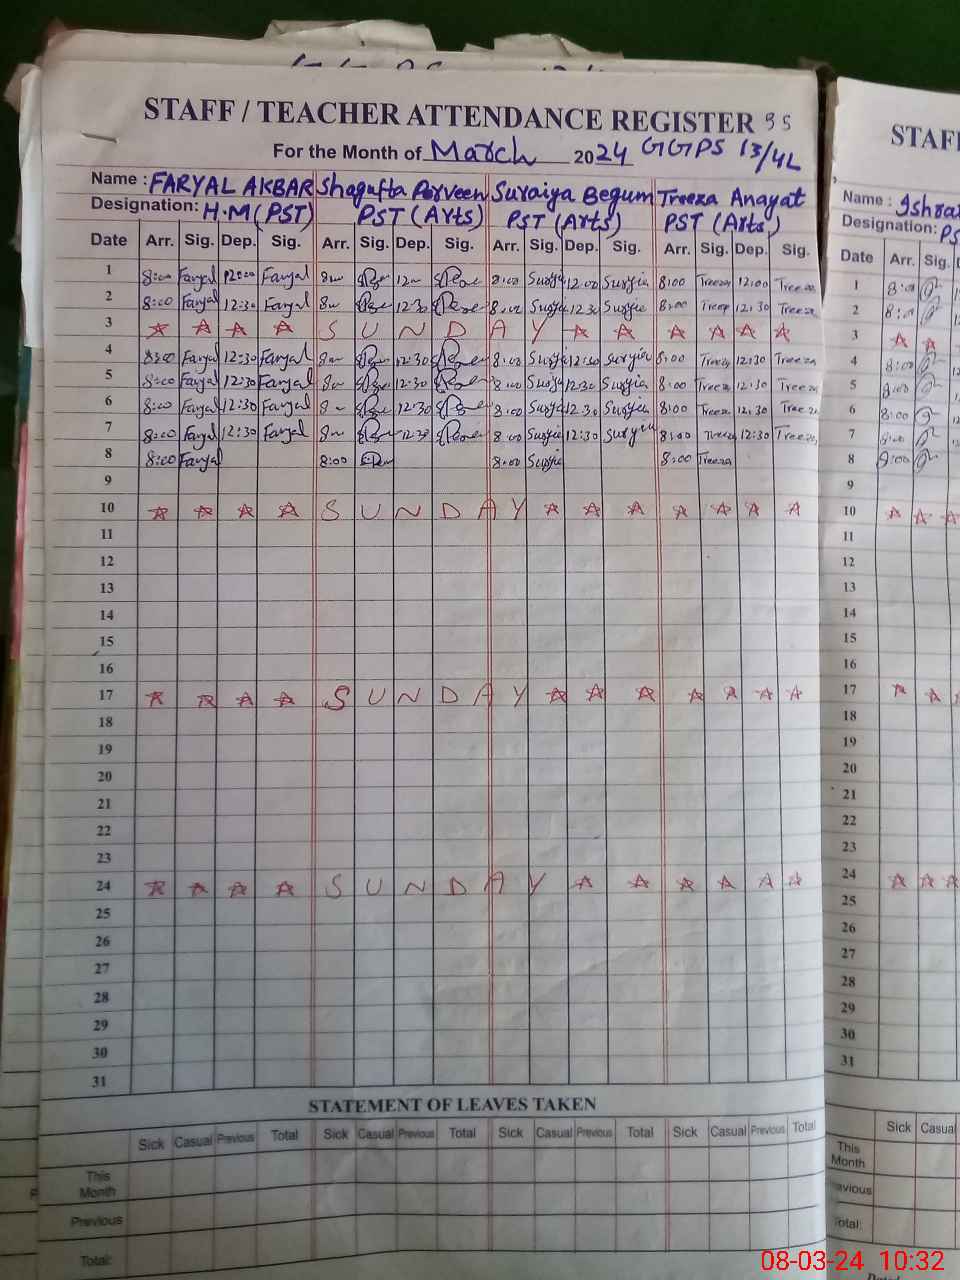 STAFF / TEACHER ATTENDANCE REGISTER 95
For the Month of March 2024 GGPS 13/4L
Name : FARYAL AKBAR Shagufta Parveen Suraiya Begum Treeza Anayat
Designation: H.M (PST) PST (Arts) PST (Arts) PST (Arts)
Date Arr. Sig. Dep. Sig. Arr. Sig. Dep. Sig. Arr. Sig. Dep. Sig. Arr. Sig. Dep. Sig.
1 8:00 Faryal 12:00 Faryal 8 12 8:00 12:00 8:00 Treeza 12:00 Treeza
2 8:00 Faryal 12:30 Faryal 8 12:30 8:00 12:30 8:00 Treeza 12:30 Treeza
3 SUNDAY
4 8:00 Faryal 12:30 Faryal 8 12:30 8:00 12:30 8:00 Treeza 12:30 Treeza
5 8:00 Faryal 12:30 Faryal 8 12:30 8:00 12:30 8:00 Treeza 12:30 Treeza
6 8:00 Faryal 12:30 Faryal 8 12:30 8:00 12:30 8:00 Treeza 12:30 Treeza
7 8:00 Faryal 12:30 Faryal 8 12:30 8:00 12:30 8:00 Treeza 12:30 Treeza
8 8:00 Faryal 8:00 8:00 8:00 Treeza
9
10 SUNDAY
11
12
13
14
15
16
17 SUNDAY
18
19
20
21
22
23
24 SUNDAY
25
26
27
28
29
30
31
STATEMENT OF LEAVES TAKEN
Sick Casual Previous Total Sick Casual Previous Total Sick Casual Previous Total Sick Casual Previous Total
This
Month
Previous
Total:
STAF
Name :
Designation: PS
Date Arr. Sig.
1 8:00
2 8:00
3
4 8:00
5 8:00
6 8:00
7 8:00
8 8:00
9
10
11
12
13
14
15
16
17
18
19
20
21
22
23
24
25
26
27
28
29
30
31
Sick Casual
This
Month
evious
Total:
08-03-24 10:32